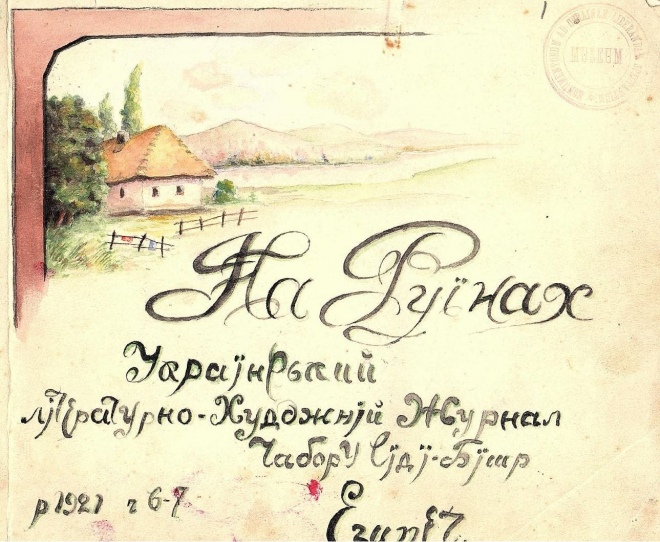 На Руїнах
Україньский
Лїтературно-Художнїй Журнал
Табору Сїдї-Бїшр
р 1921 ч 6-7
Египет